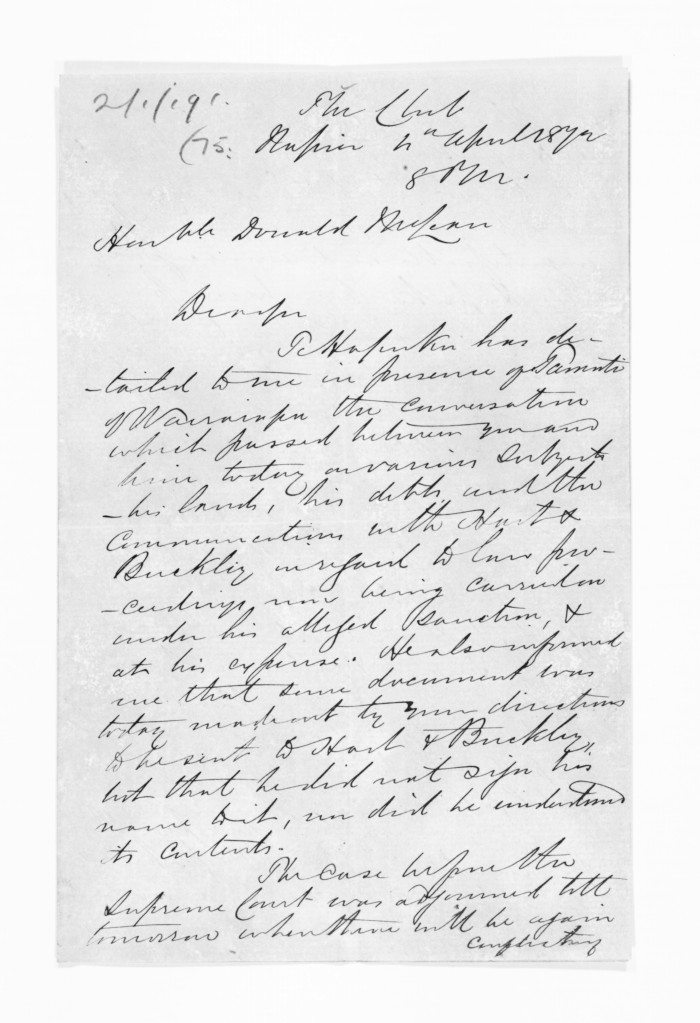 2/1/191.
The Club
(75. Napier 4th April 1872
8 P.M.
Honble Donald McLean
Dear Sir
Te Hapuku has de-
-tailed to me in presence of Tamati
of Wairarapa the conversation
which passed between you and
him today on various subjects
-his lands, his debts, and the
communications with Hart &
Buckley in regard to law pro-
-ceedings now being carried on
under his alleged sanction, &
at his expense. He also informed
me that some document was
today made out by your directions
to be sent to Hart & Buckley,
but that he did not sign his
name to it, nor did he understand
its contents.
The case before the
Supreme Court was adjourned till
tomorrow when there will be again
conflicting